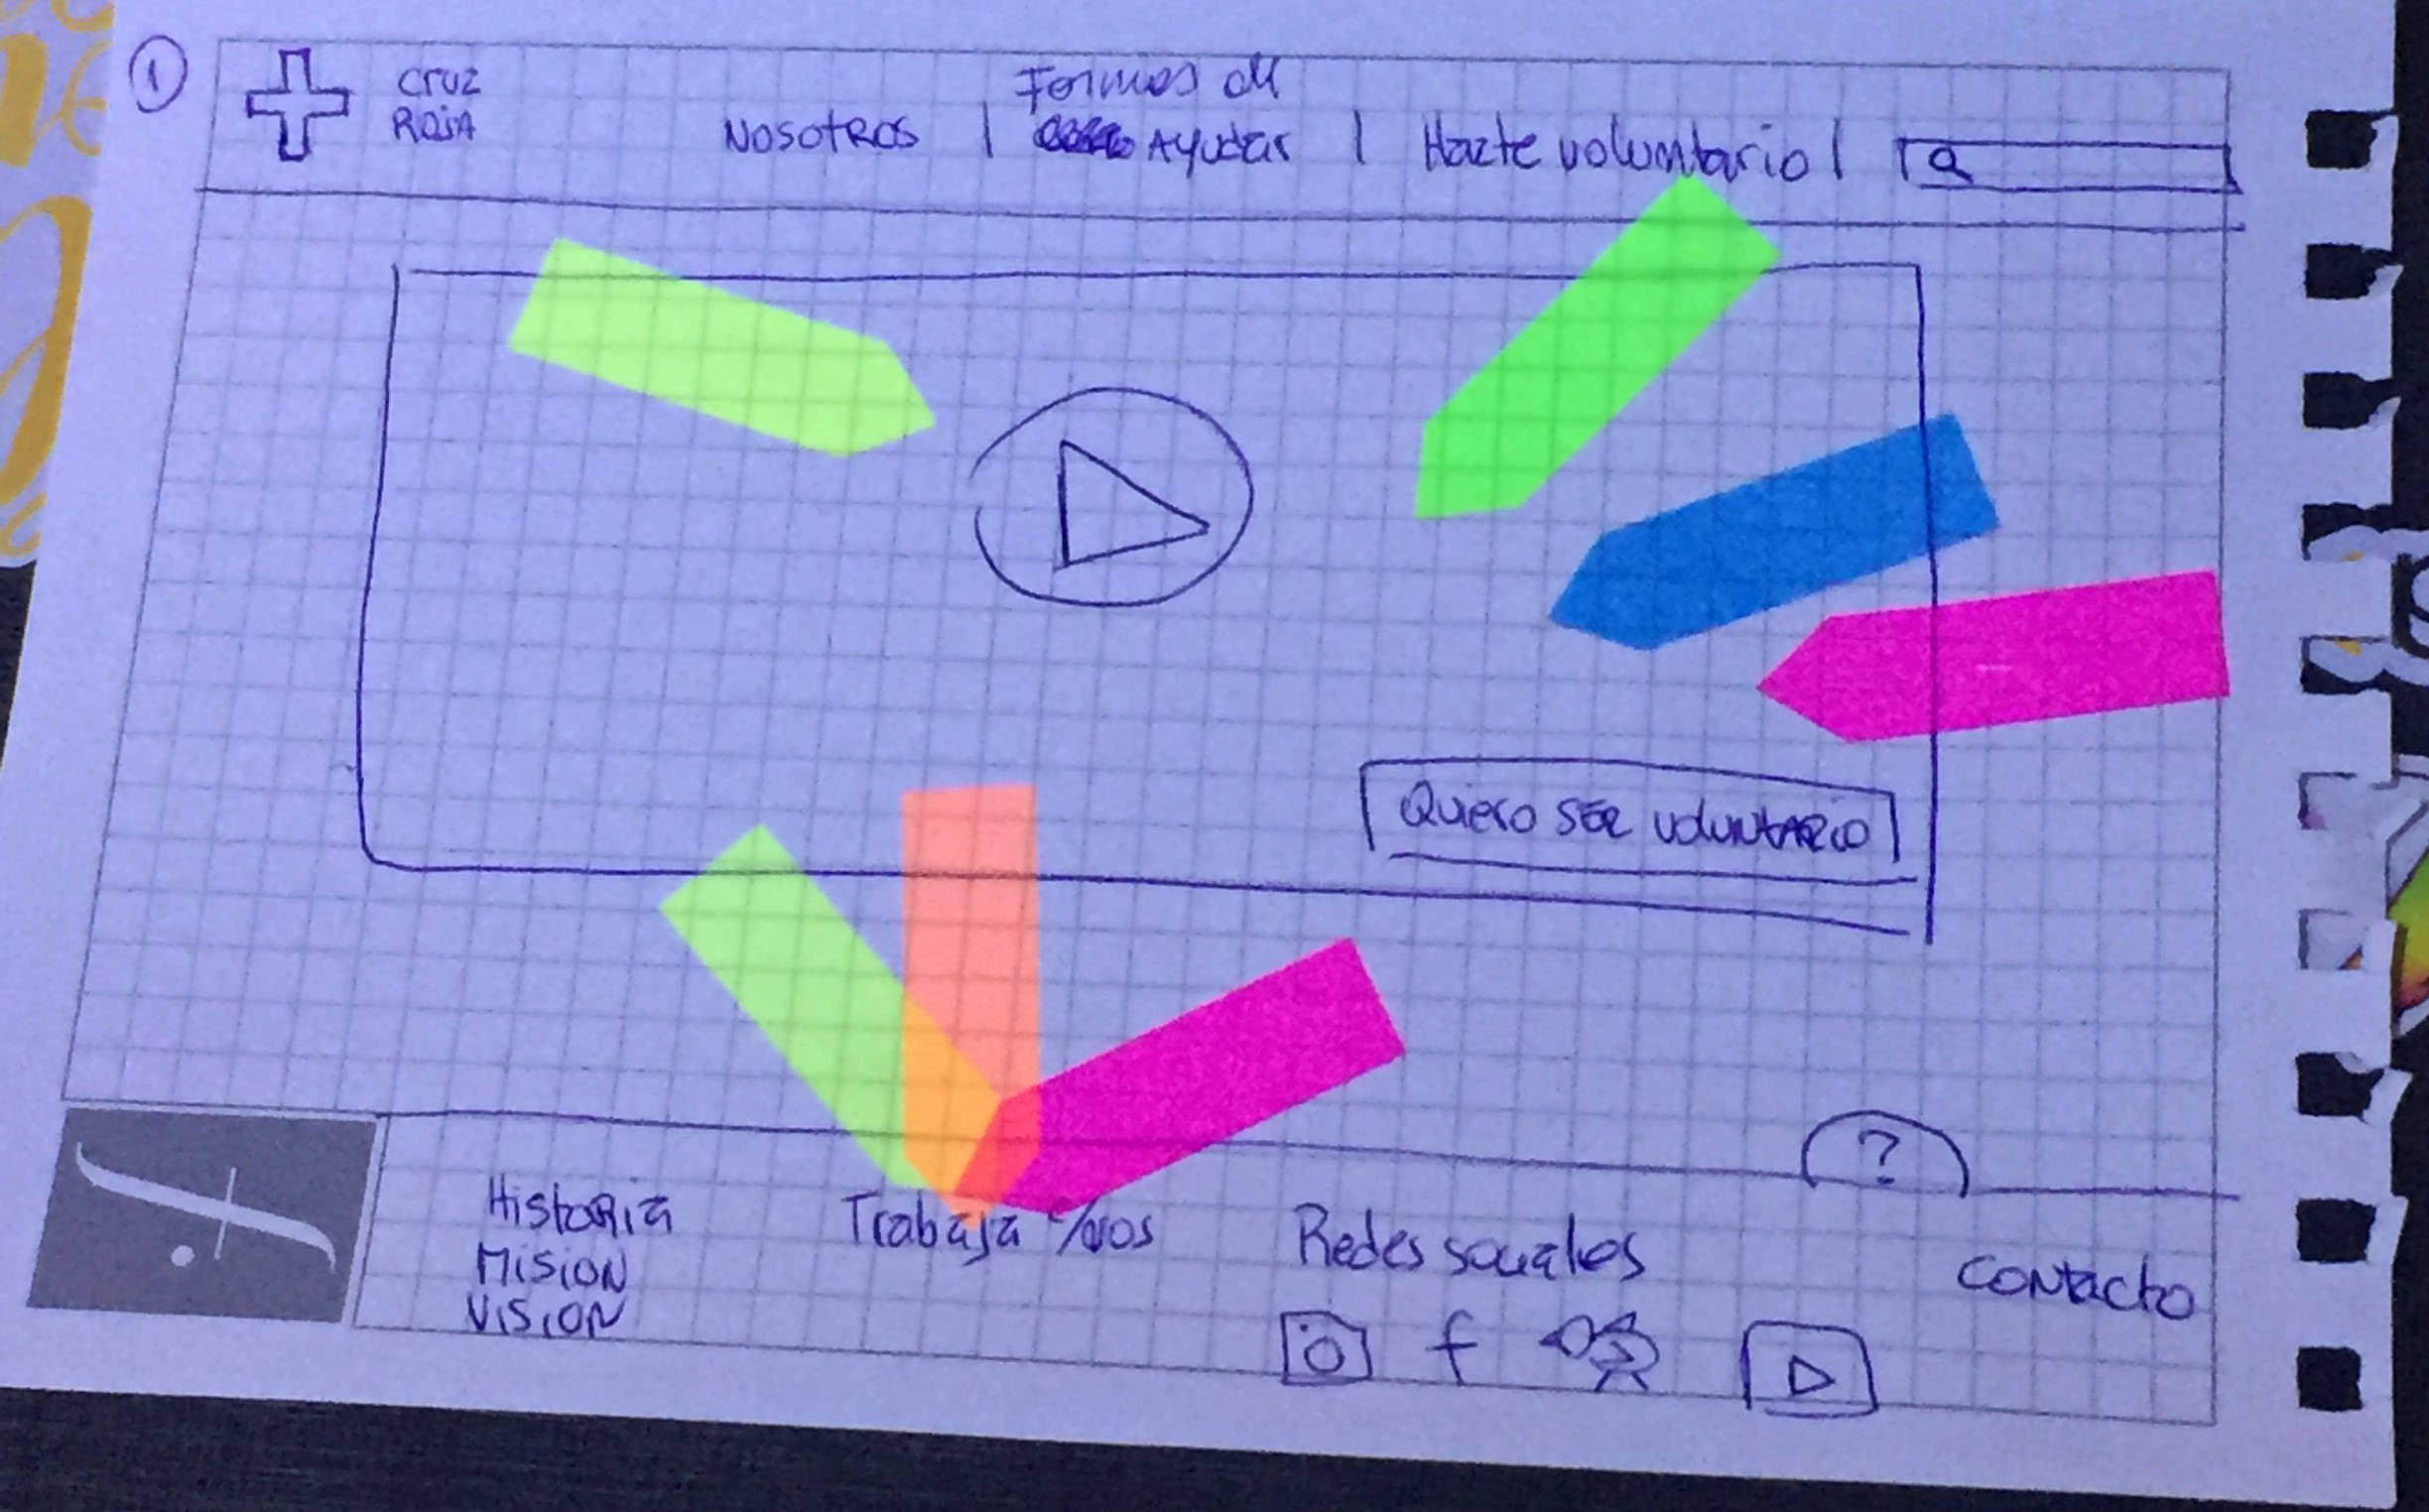 1
CRUZ
ROJA
NOSOTROS | Formas de Ayudar | Hazte voluntario |
Quiero SER VOLUNTARIO
?
Historia
Mision
Vision
Trabaja c/nos
Redes sociales
f
Contacto